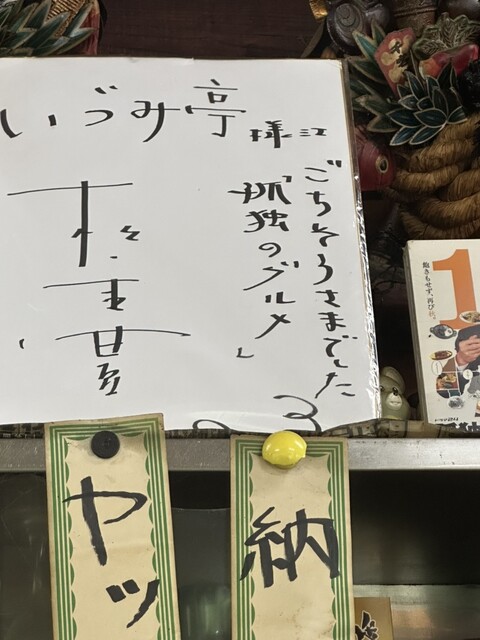 いづみ亭様江
ごちそうさまでした
「孤独のグルメ」
松重豊
飽きもせず、再び
1
ヤッ
納